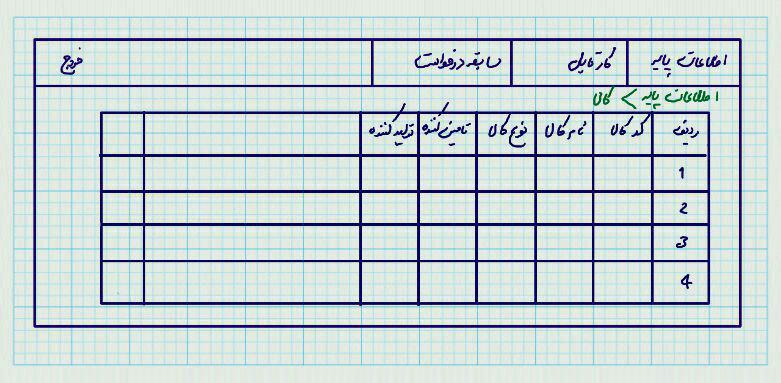 اطلاعات پایه کارتابل سابقه درخواست خروج
اطلاعات پایه > کالا
ردیف کد کالا نام کالا نوع کالا تامین کننده تولید کننده
1
2
3
4